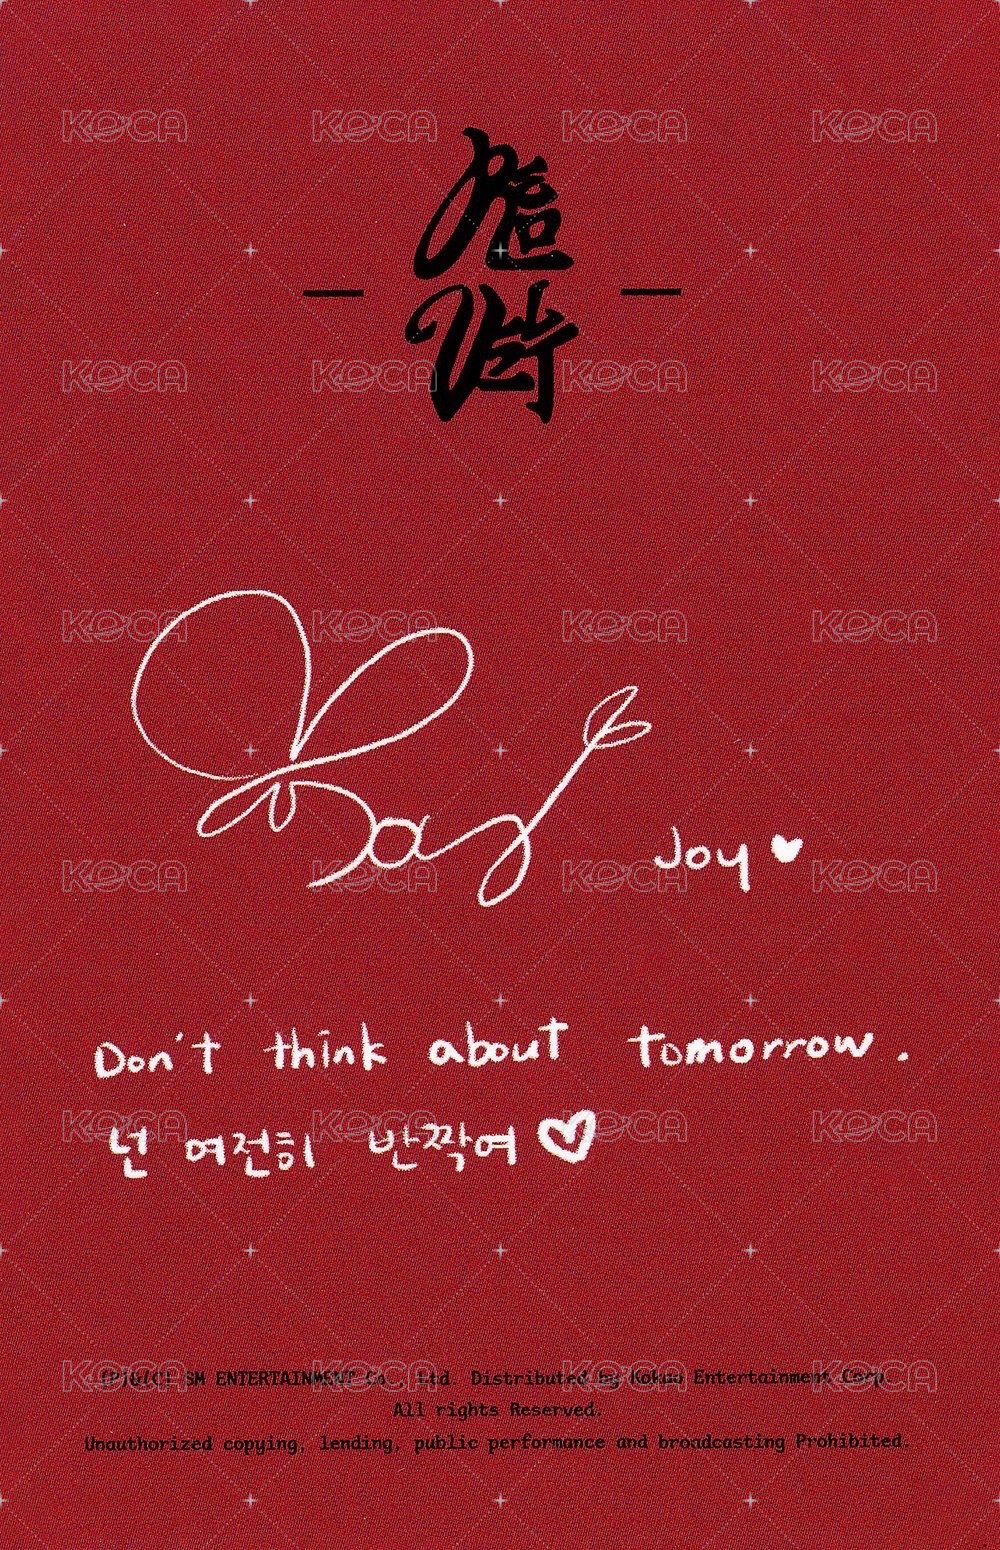 KOCA KOCA KOCA KOCA
KOCA KOCA KOCA KOCA
KOCA KOCA KOCA KOCA
Joy ♥
KOCA KOCA KOCA KOCA
Don't think about tomorrow.
넌 여전히 반짝여 ♡
KOCA KOCA KOCA KOCA
(P)&(C) SM ENTERTAINMENT Co., Ltd. Distributed by Kakao Entertainment Corp.
KOCA KOCA KOCA KOCA
All rights Reserved.
Unauthorized copying, lending, public performance and broadcasting Prohibited.